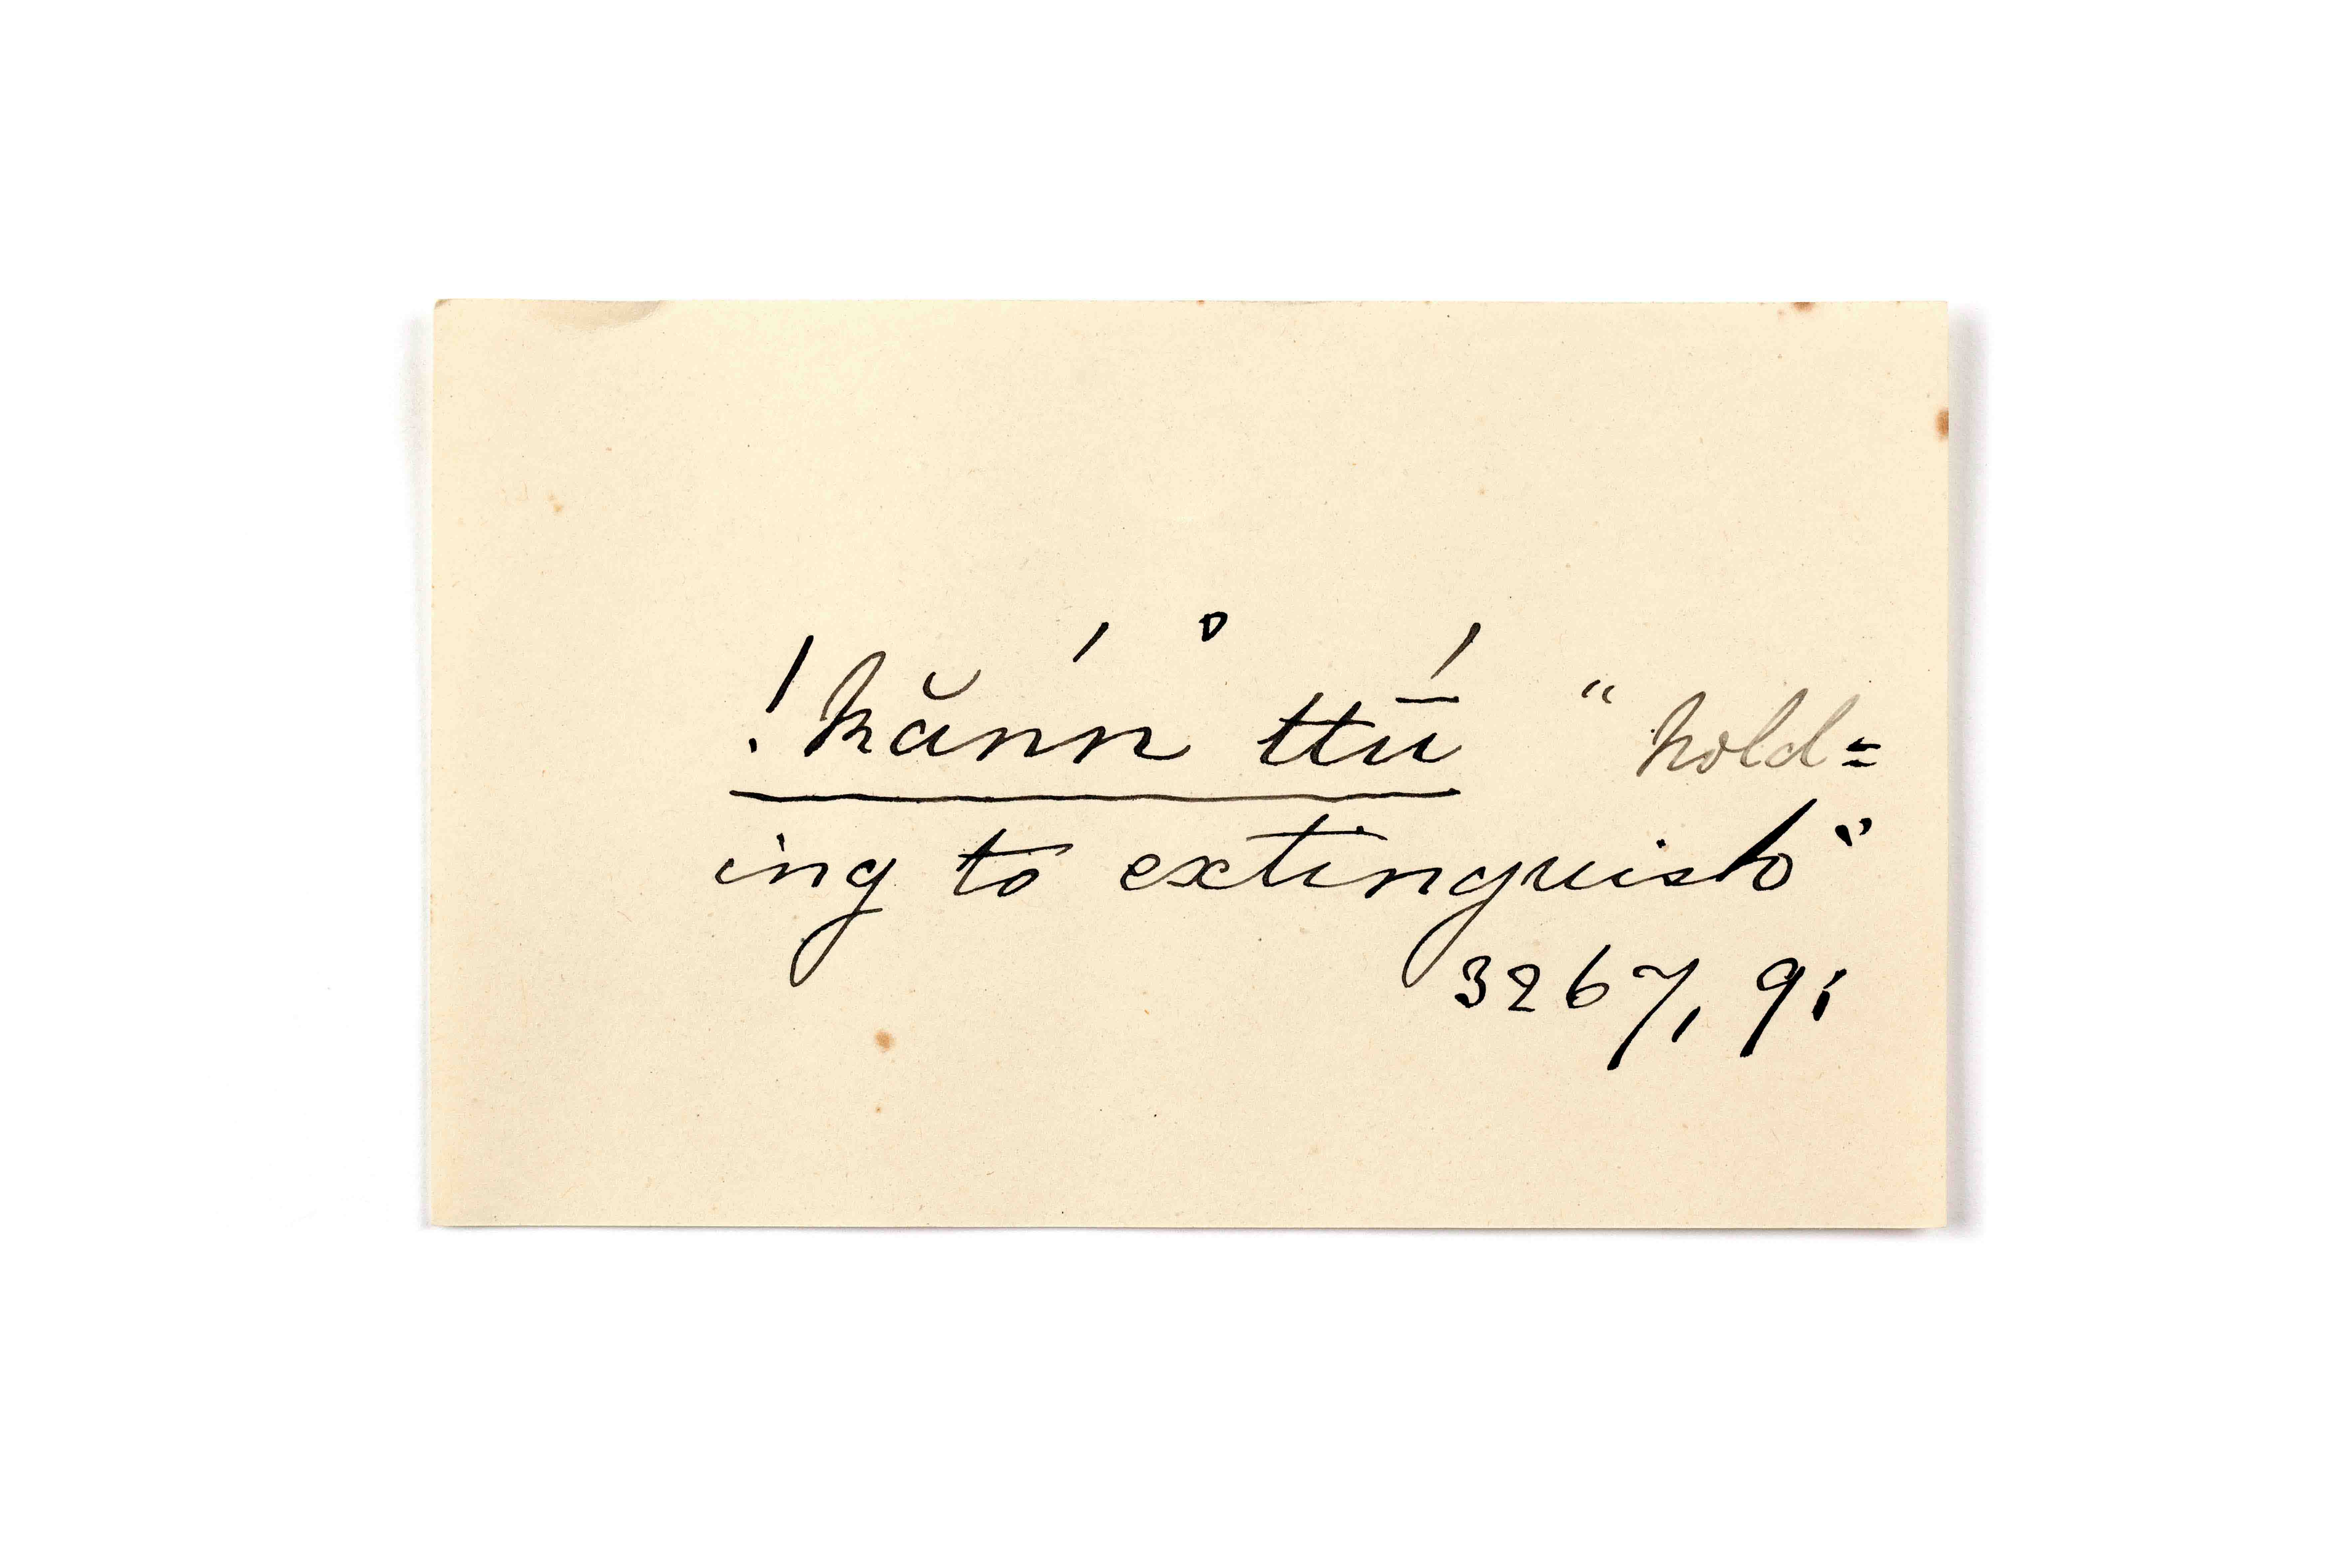 !kắnn̊ ttū́ "hold=
ing to extinguish"
3267, 9i